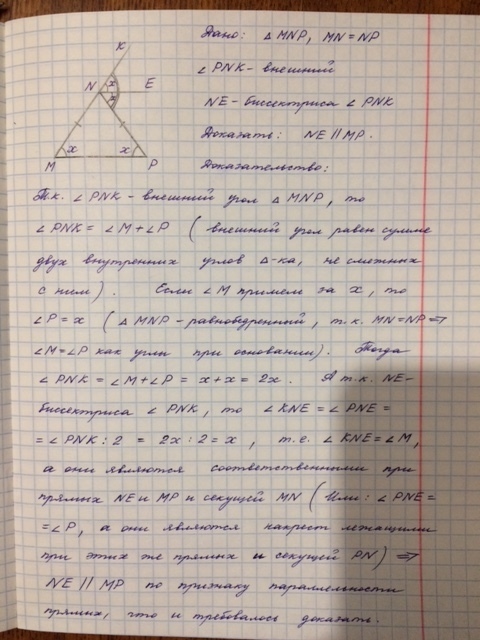 Дано: △ MNP, MN = NP
∠ PNK - внешний
NE - биссектриса ∠ PNK
Доказать: NE || MP.
Доказательство:
K
N
x
x
E
x
x
M
P
Т.к. ∠ PNK - внешний угол △ MNP, то
∠ PNK = ∠ M + ∠ P ( внешний угол равен сумме
двух внутренних углов △-ка, не смежных
с ним). Если ∠ M примем за x, то
∠ P = x ( △ MNP - равнобедренный, т.к. MN = NP ⇒
∠M = ∠P как углы при основании). Тогда
∠ PNK = ∠ M + ∠ P = x + x = 2x. А т.к. NE -
биссектриса ∠ PNK, то ∠ KNE = ∠ PNE =
= ∠ PNK : 2 = 2x : 2 = x, т.е. ∠ KNE = ∠ M,
а они являются соответственными при
прямых NE и MP и секущей MN ( Или: ∠ PNE =
= ∠ P, а они являются накрест лежащими
при этих же прямых и секущей PN) ⇒
NE || MP по признаку параллельности
прямых, что и требовалось доказать.